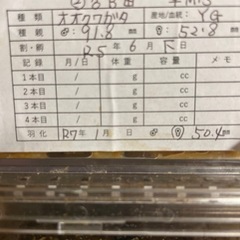 種類 オオクワガタ 産地/血統 YG
種親 ♂ 91.8 mm ♀ 52.8 mm
割・網 R5年 6月 下日
記録 月/日 体重 容量 メモ
1本目 / g cc
2本目 / g cc
3本目 / g cc
4本目 / g cc
羽化 R7年 1月 日 ♂ ♀ 50.4 mm